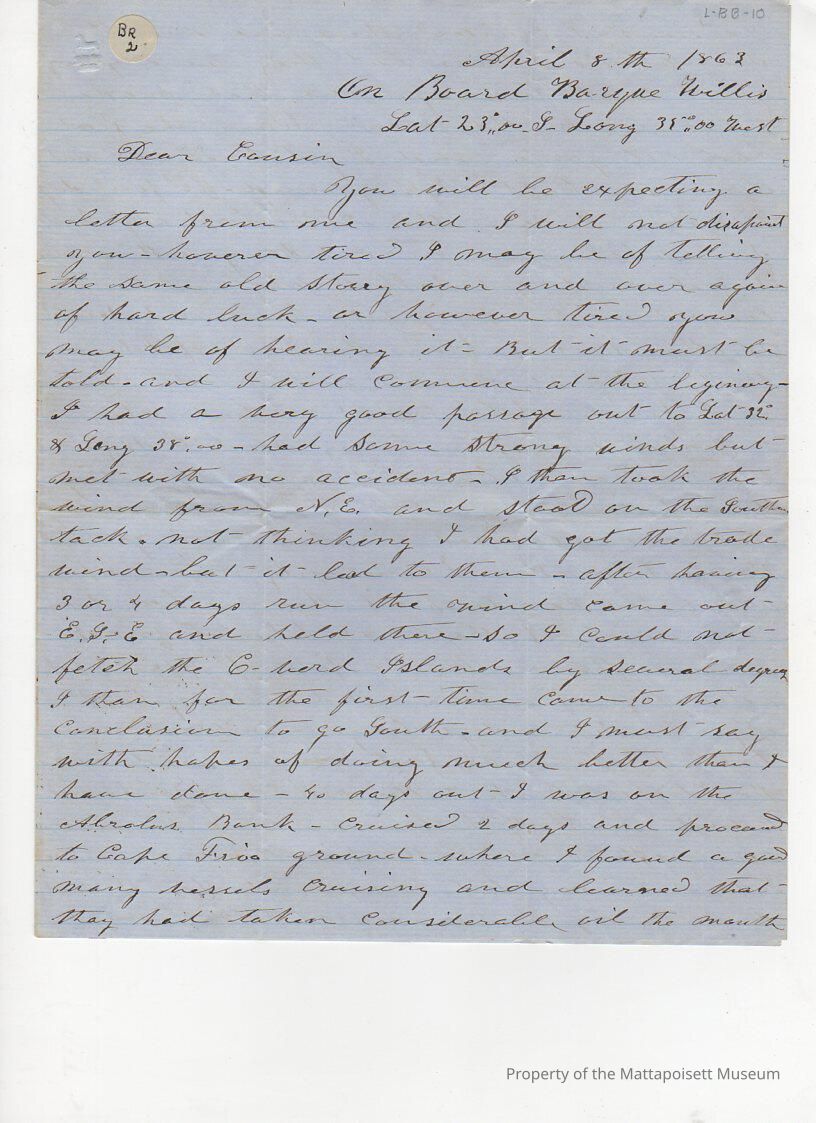 L-BB-10
BR
2
April 8th 1863
On Board Barque Willis
Lat 23°,,00 S- Long 35°,,00 West
Dear Cousin
You will be expecting a
letter from me and I will not disapoint
you - however tired I may be of telling
the same old story over and over again
of hard luck - or however tired you
may be of hearing it - But it must be
told - and I will commence at the
I had a very good passage out to Lat 32°
& Long 38°.00 - had some strong winds but
met with no accident - I than took the
wind from N.E. and stood on the
tack - not thinking I had got the trade
wind - but it led to them - after having
3 or 4 days run the wind came out
E.S.E and held there - so I could not
fetch the C- verd Islands by several degrees
I than for the first time came to the
conclusion to go South - and I must say
with hopes of doing much better than I
have done - 40 days out I was on the
Abrolus Bank - cruised 2 days and proceed
to Cape Frio ground - where I found a good
many vessels cruising and learned that
they had taken considerable oil the month
Property of the Mattapoisett Museum